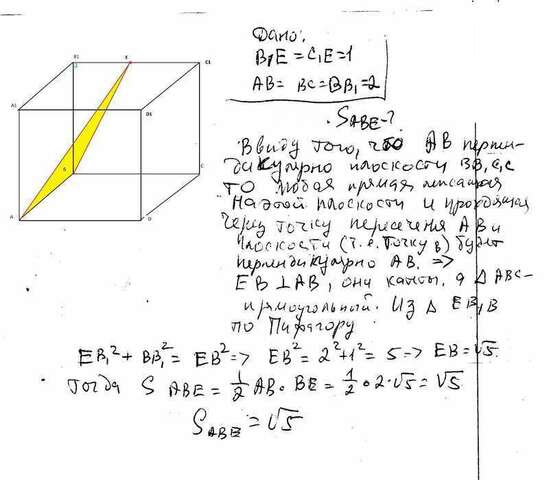 B1 E C1
A1 D1
B C
A D
Дано:
B₁E = C₁E = 1
AB = BC = BB₁ = 2
S_ABE - ?
Ввиду того, что AB перпен-
дикулярно плоскости BB₁C₁C
то любая прямая лежащая
на этой плоскости и проходящая
через точку пересечения AB и
плоскости (т.е. точку B) будет
перпендикулярно AB. =>
EB ⊥ AB, они катеты, а △ ABC -
прямоугольный. Из △ EB₁B
по Пифагору
EB₁² + BB₁² = EB² => EB² = 2² + 1² = 5 => EB = √5.
Тогда S ABE = 1/2 AB • BE = 1/2 • 2 • √5 = √5
S_ABE = √5